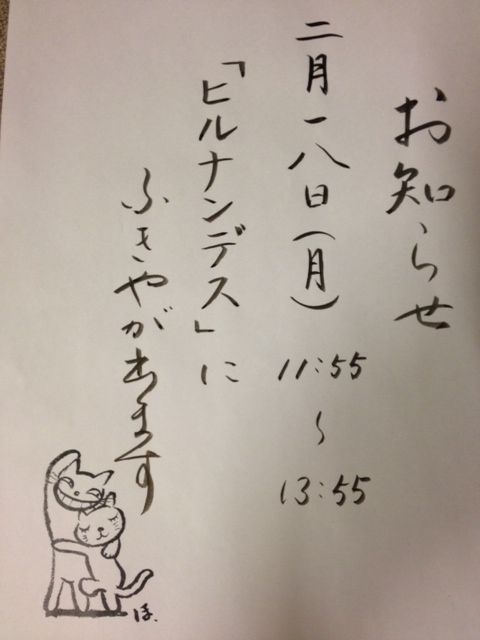 お知らせ
二月一八日(月) 11:55~13:55
「ヒルナンデス」に
ふきやがあます
ほ.